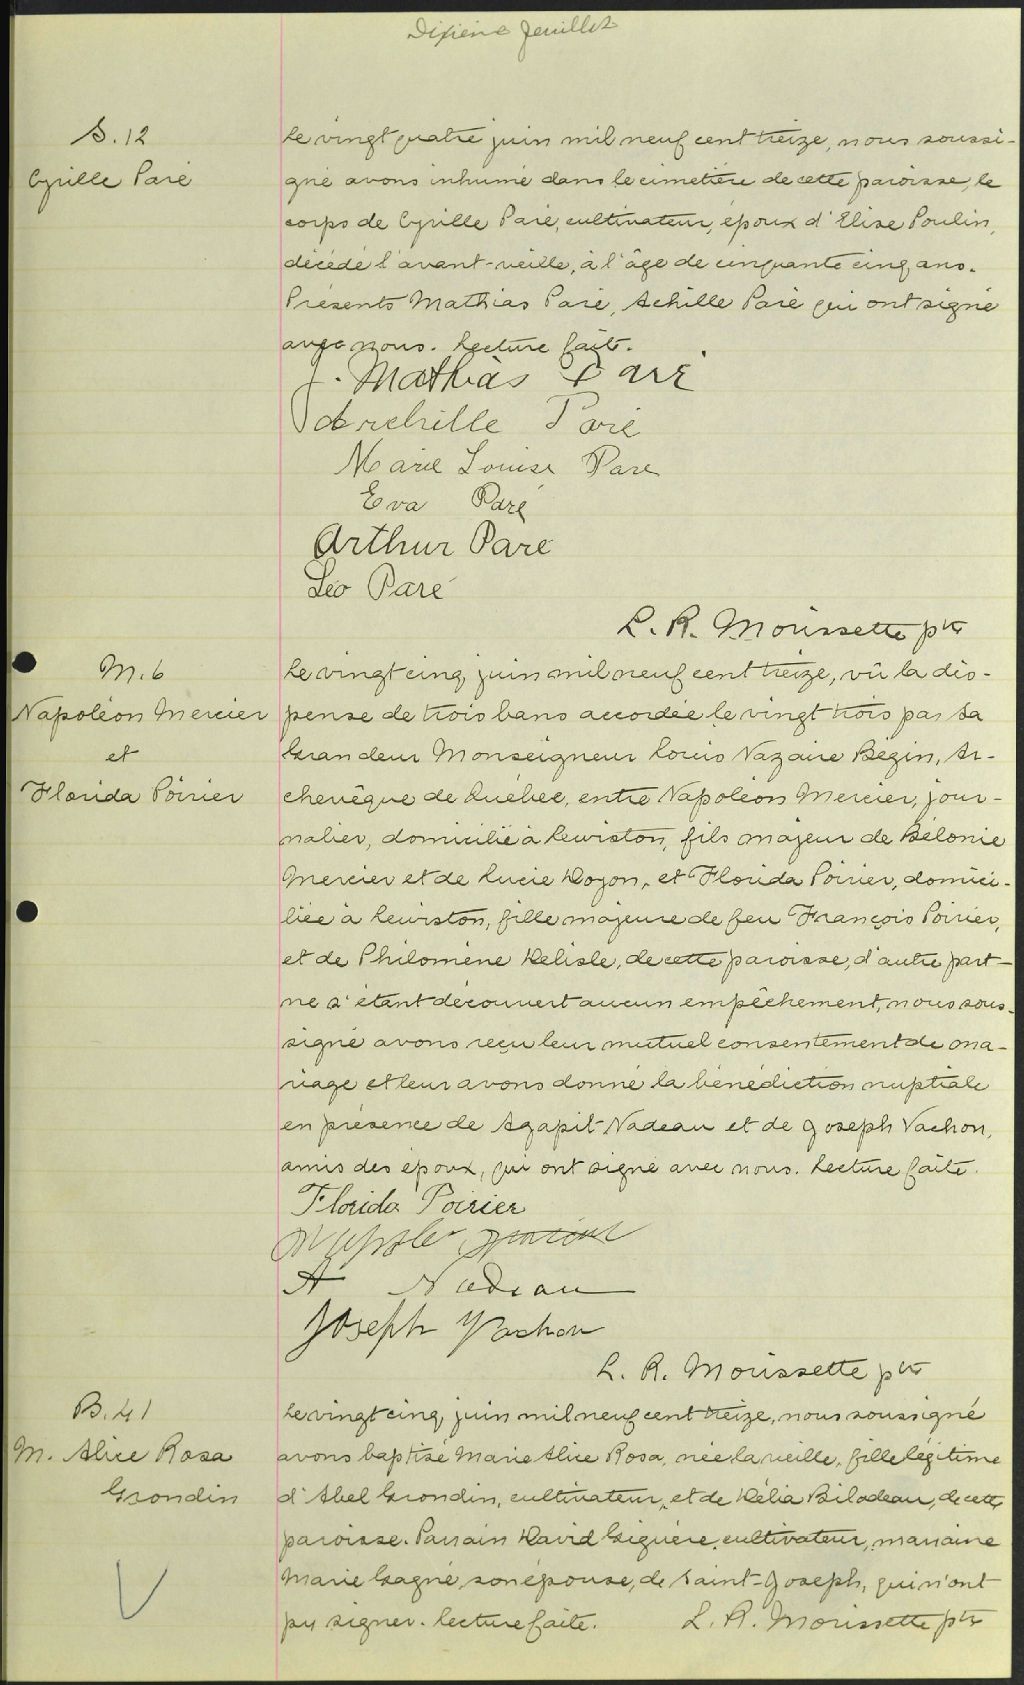 Dixième feuillet
S. 12
Cyrille Paré
Le vingt quatre juin mil neuf cent treize, nous soussi-
gné avons inhumé dans le cimetière de cette paroisse, le
corps de Cyrille Paré, cultivateur, époux d'Elise Poulin,
décédé l'avant-veille, à l'âge de cinquante cinq ans.
Présents Mathias Paré, Achille Paré qui ont signé
avec nous. Lecture faite.
J. Mathias Paré
Archille Paré
Marie Louise Pare
Eva Paré
Arthur Paré
Léo Paré
L. R. Morissette ptre
M. 6
Napoléon Mercier
et
Florida Poirier
Le vingt cinq juin mil neuf cent treize, vû la dis-
pense de trois bans accordée le vingt trois par Sa
Grandeur Monseigneur Louis Nazaire Bégin, Ar-
chevêque de Québec, entre Napoléon Mercier, jour-
nalier, domicilié à Lewiston, fils majeur de Bélonie
Mercier et de Lucie Doyon, et Florida Poirier, domici-
liée à Lewiston, fille majeure de feu François Poirier,
et de Philomène Delisle, de cette paroisse, d'autre part
ne s'étant découvert aucun empêchement, nous sous-
signé avons reçu leur mutuel consentement de ma-
riage et leur avons donné la bénédiction nuptiale
en présence de Agapit Nadeau et de Joseph Vachon,
amis des époux, qui ont signé avec nous. Lecture faite.
Florida Poirier
A Nadeau
Joseph Vachon
L. R. Morissette ptre
B. 41
M. Alice Rosa
Grondin
Le vingt cinq juin mil neuf cent treize, nous soussigné
avons baptisé Marie Alice Rosa, née la veille, fille légitime
d'Abel Grondin, cultivateur, et de Délia Bilodeau, de cette
paroisse. Parrain David Giguère, cultivateur, marraine
Marie Gagné son épouse, de Saint-Joseph, qui n'ont
pu signer. Lecture faite. L. R. Morissette ptre